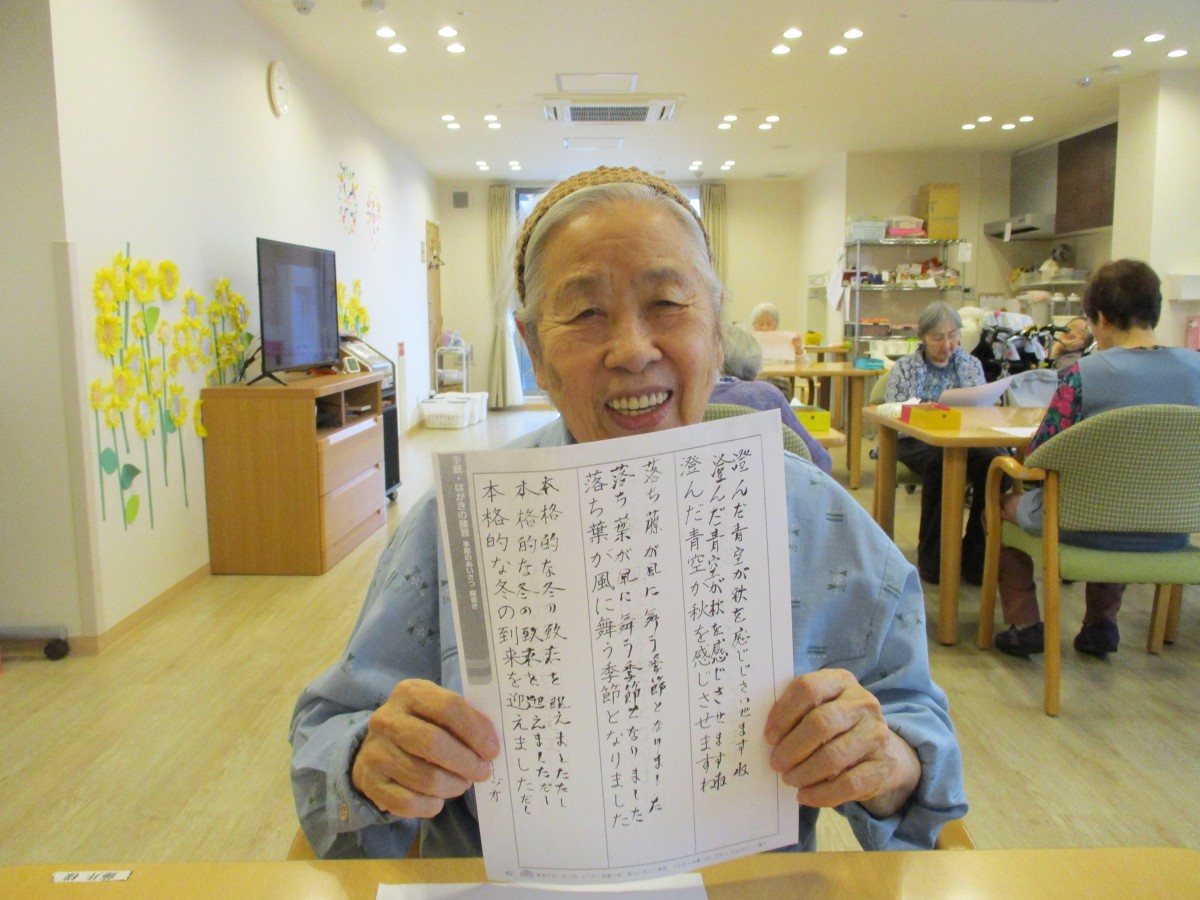 澄んだ青空が秋を感じじさいせますね
澄んだ青空が秋を感じさせますね
澄んだ青空が秋を感じさせますね
落ち藤が風に舞う季節となりました
落ち葉が風に舞う季節となりました
落ち葉が風に舞う季節となりました
本格的な冬の致来を迎えましたたし
本格的な冬の致来を迎えましただし
本格的な冬の到来を迎えました
手紙・はがきの練習 手紙のあいさつ 縦書き